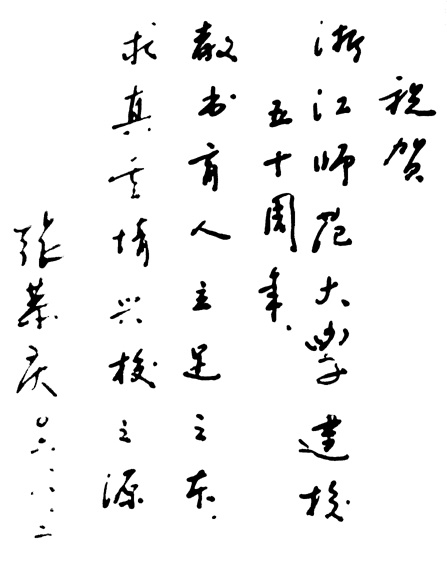 祝贺
浙江师范大学建校
五十周年.
教书育人立足之本.
求真情兴校之源
张庆〇六.八.二